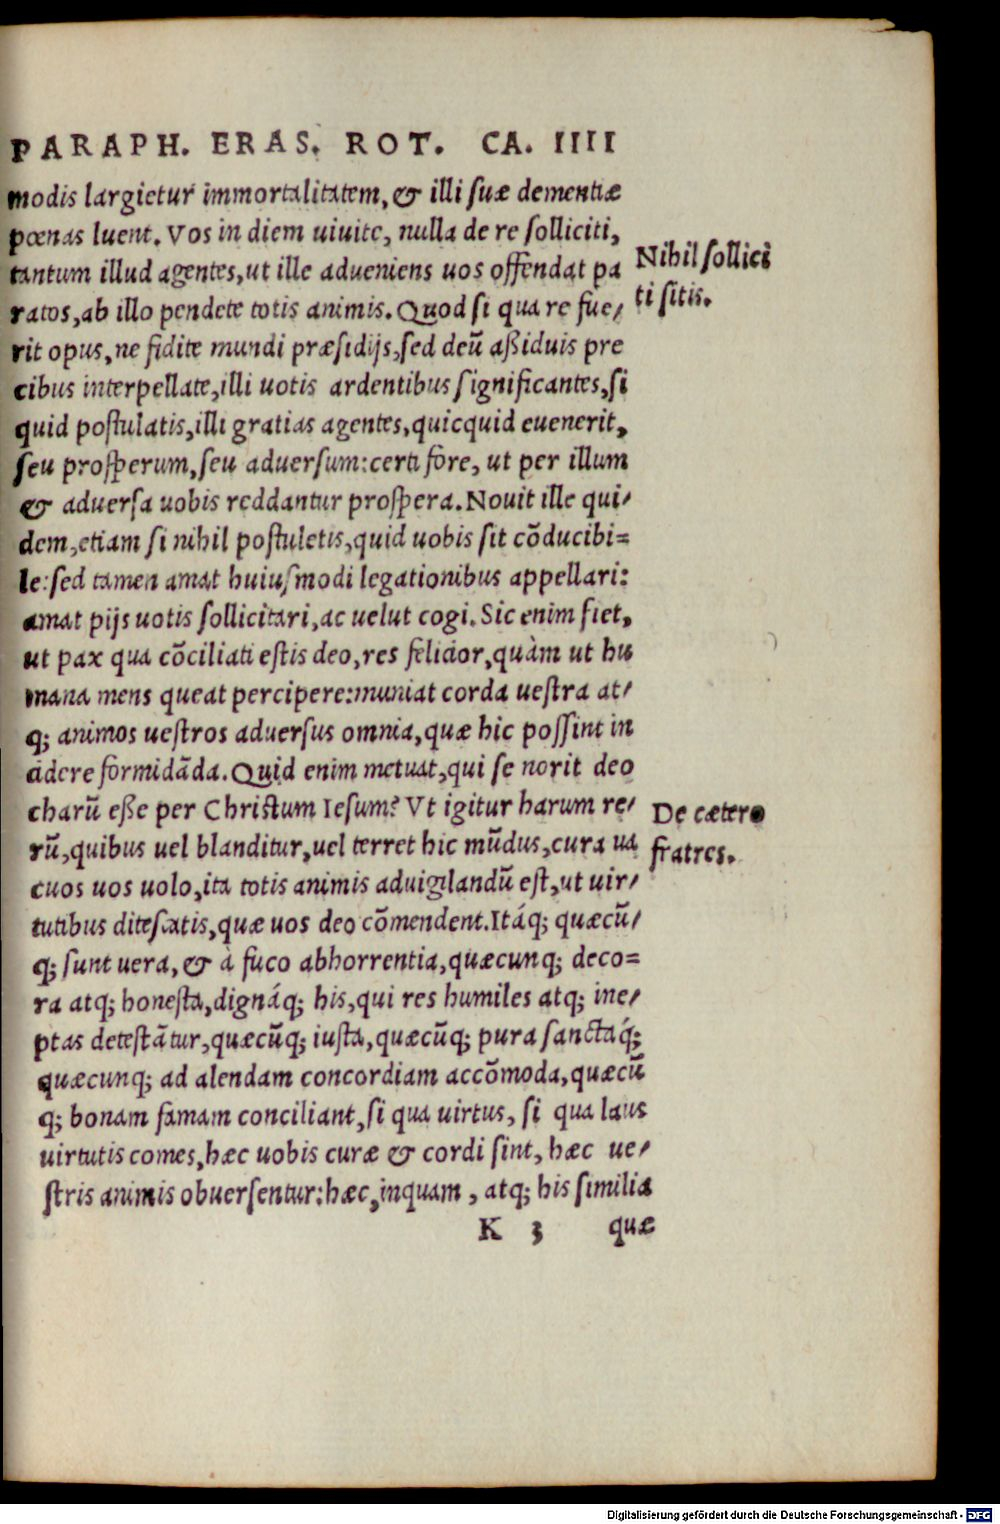 PARAPH. ERAS. ROT. CA. IIII
modis largietur immortalitatem, & illi suæ dementiæ
pœnas luent. Vos in diem uiuite, nulla de re solliciti,
tantum illud agentes, ut ille adueniens uos offendat pa
ratos, ab illo pendete totis animis. Quod si qua re fue/
rit opus, ne fidite mundi præsidijs, sed deũ aßiduis pre
cibus interpellate, illi uotis ardentibus significantes, si
quid postulatis, illi gratias agentes, quicquid euenerit,
seu prosperum, seu aduersum: certi fore, ut per illum
& aduersa uobis reddantur prospera. Nouit ille qui/
dem, etiam si nihil postuletis, quid uobis sit cõducibi=
le: sed tamen amat huiusmodi legationibus appellari:
amat pijs uotis sollicitari, ac uelut cogi. Sic enim fiet,
ut pax qua cõciliati estis deo, res felicior, quàm ut hu
mana mens queat percipere: muniat corda uestra at/
q; animos uestros aduersus omnia, quæ hic possint in
cidere formidãda. Quid enim metuat, qui se norit deo
charũ eße per Christum Iesum? Vt igitur harum re/
rũ, quibus uel blanditur, uel terret hic mũdus, cura ua
cuos uos uolo, ita totis animis aduigilandũ est, ut uir/
tutibus ditescatis, quæ uos deo cõmendent. Itáq; quæcũ/
q; sunt uera, & à fuco abhorrentia, quæcunq; deco=
ra atq; honesta, dignáq; his, qui res humiles atq; ine/
ptas detestãtur, quæcũq; iusta, quæcũq; pura sanctaq́;
quæcunq; ad alendam concordiam accõmoda, quæcũ
q; bonam famam conciliant, si qua uirtus, si qua laus
uirtutis comes, hæc uobis curæ & cordi sint, hæc ue/
stris animis obuersentur: hæc, inquam, atq; his similia
K 3 quæ
Nihil sollici
ti sitis.
De cætero
fratres.
Digitalisierung gefördert durch die Deutsche Forschungsgemeinschaft - DFG